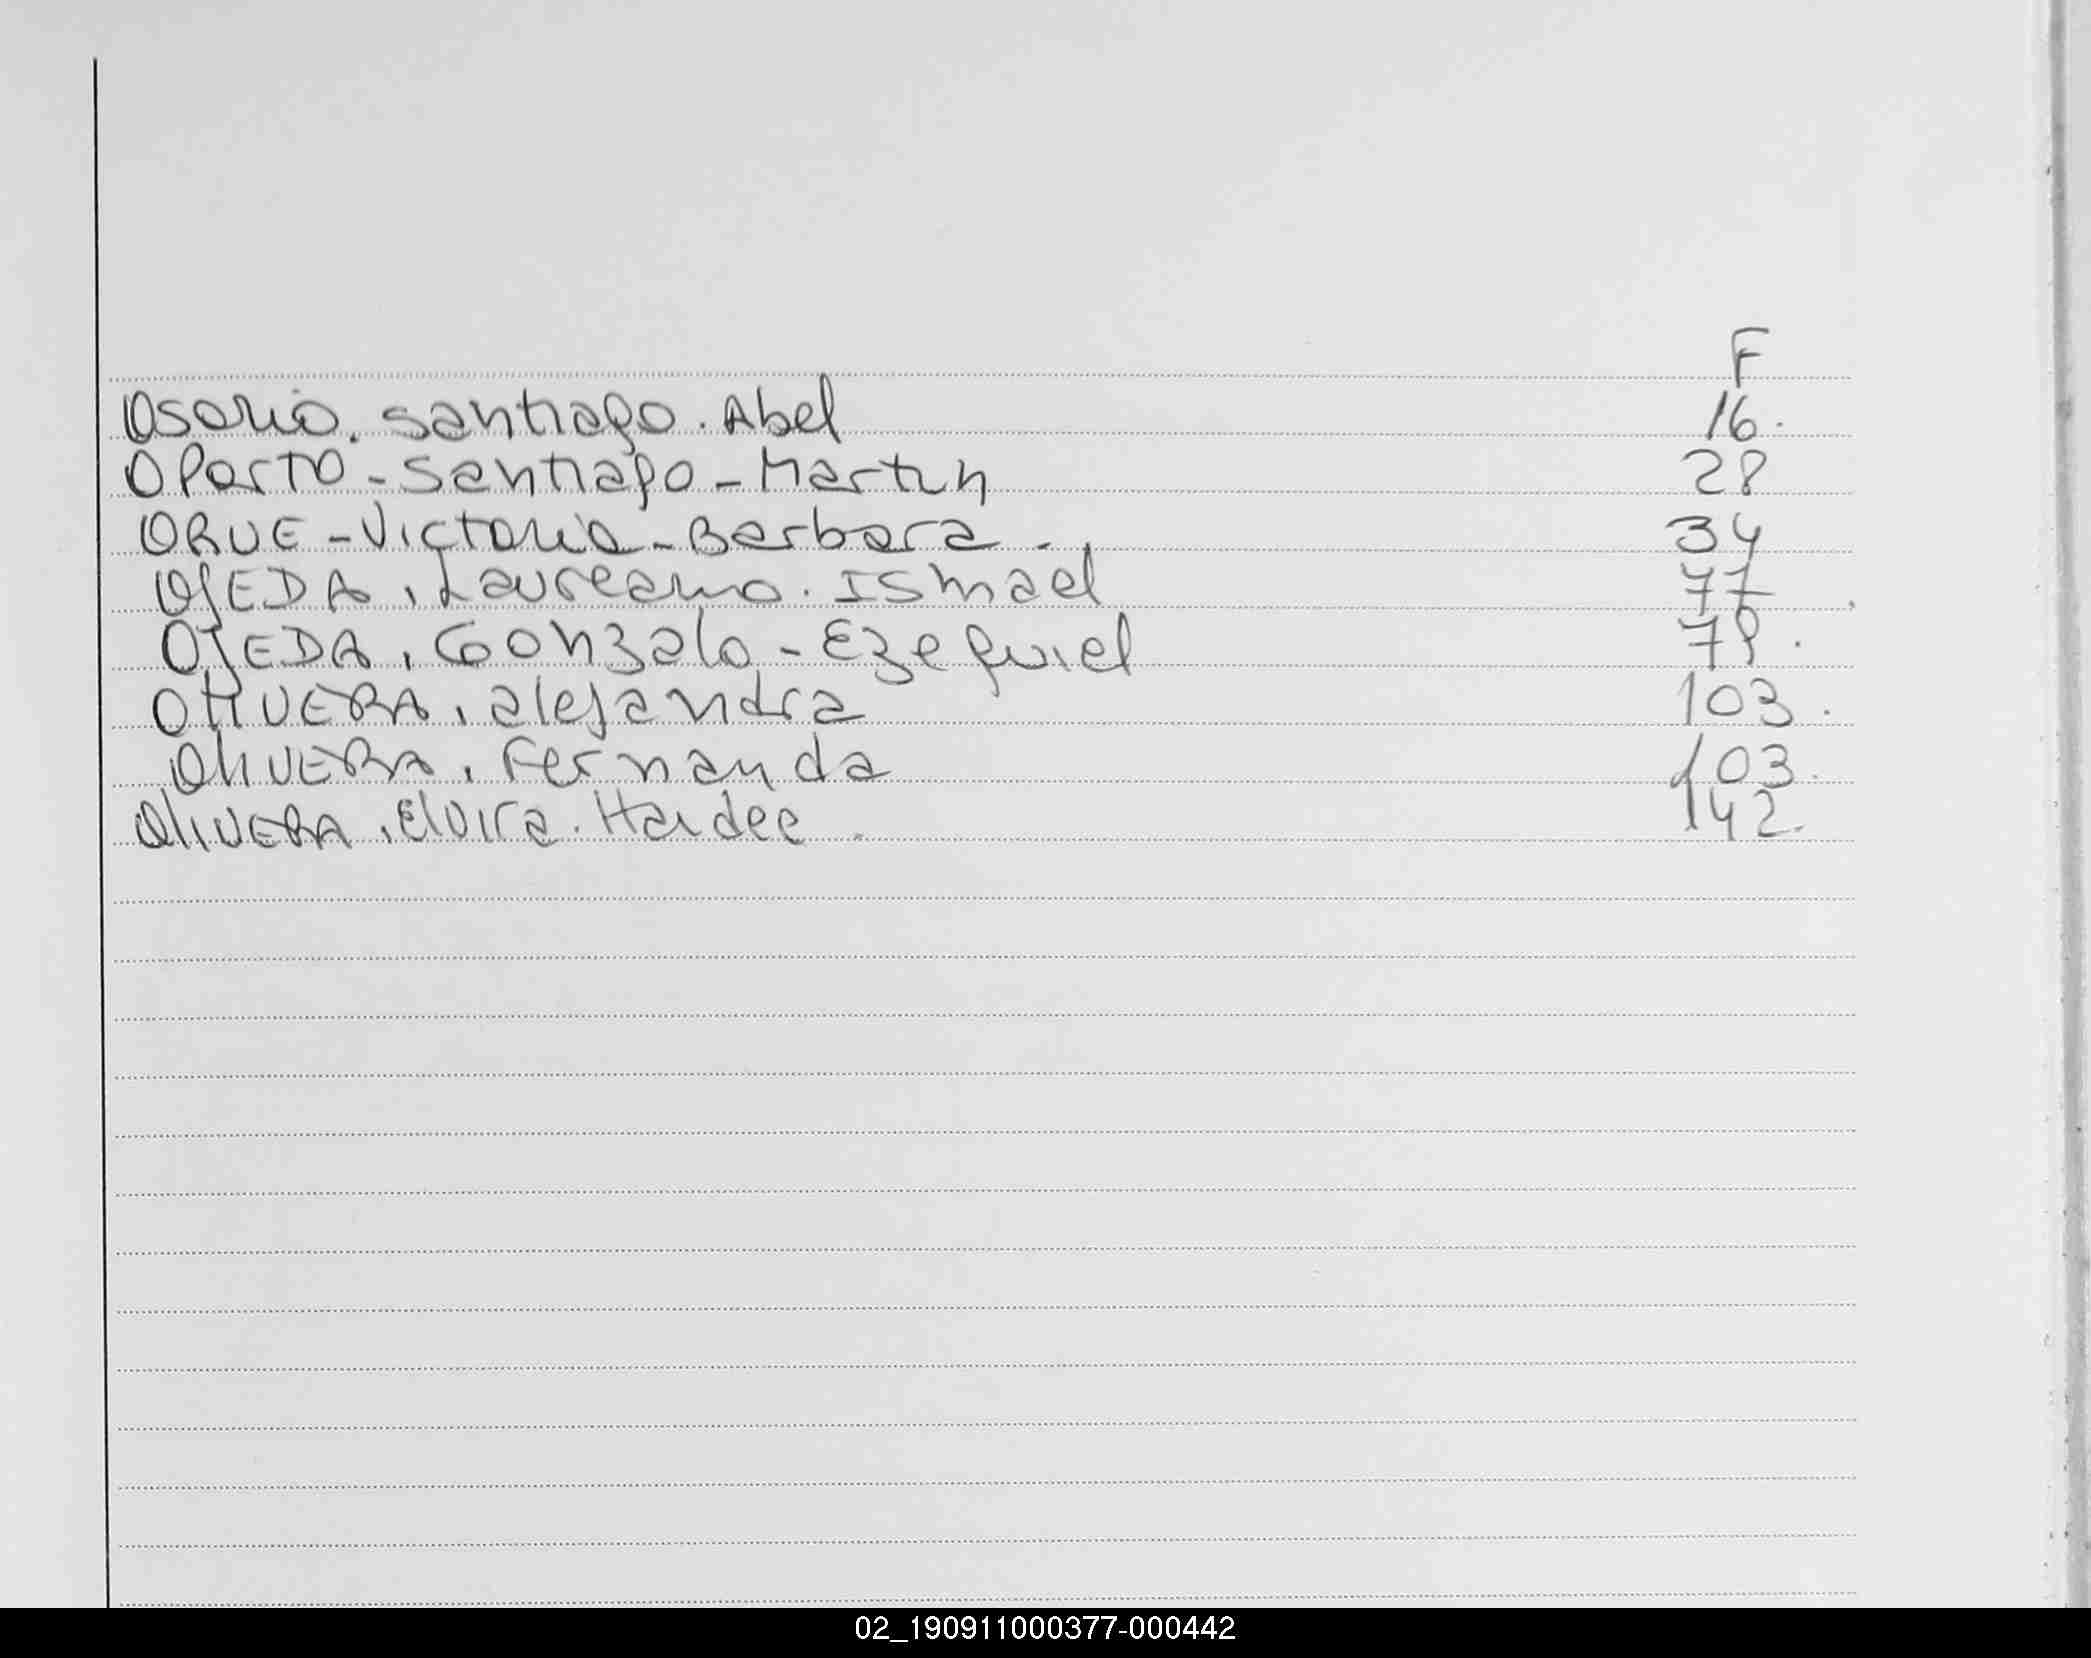 F
Osorio. Santiago. Abel 16.
OPorTO - Santiago - Martin 28
ORUE - Victoria - Barbara - . 34
OJEDA, Laureano. Ismael 77
OJEDA, Gonzalo - Ezequiel 78.
OlIVERA, alejandra 103.
OlIVERA, Fernanda 103.
OlIVERA, Elvira. Haidee. 142.
02_190911000377-000442